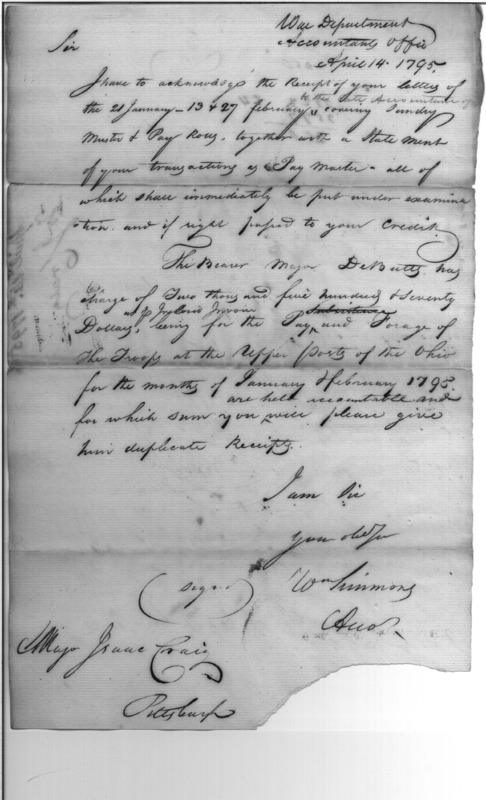 War Department
Accountants Office
April 14. 1795.
Sir
I have to acknowledge the Receipt of your letters of
the 21 January - 13 & 27 February, to the late Accountant covering Sundry
Muster & Pay Rolls, together with a State ment
of your transactions as Pay Master - all of
which shall immediately be put under examina
tion. and if right passed to your Credit.
The Bearer Major DeButts has
Charge of Two thousand five hundred & seventy
Dollars, being for the Pay and Forage of
the Troops at the Upper Posts of the Ohio
for the months of January & February 1795.
for which sum you are held accountable and will please give
him duplicate Receipts.
I am Sir
your obed Sr
(signed) Wm Simmons
Acct
Major Isaac Craig
Pittsburgh